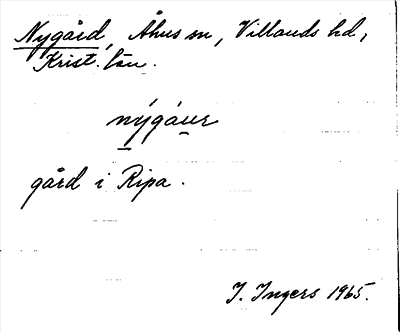 Nygård, Åhus sn, Villands hd,
Krist. län.
nýgáur
gård i Ripa.
I. Ingers 1965.